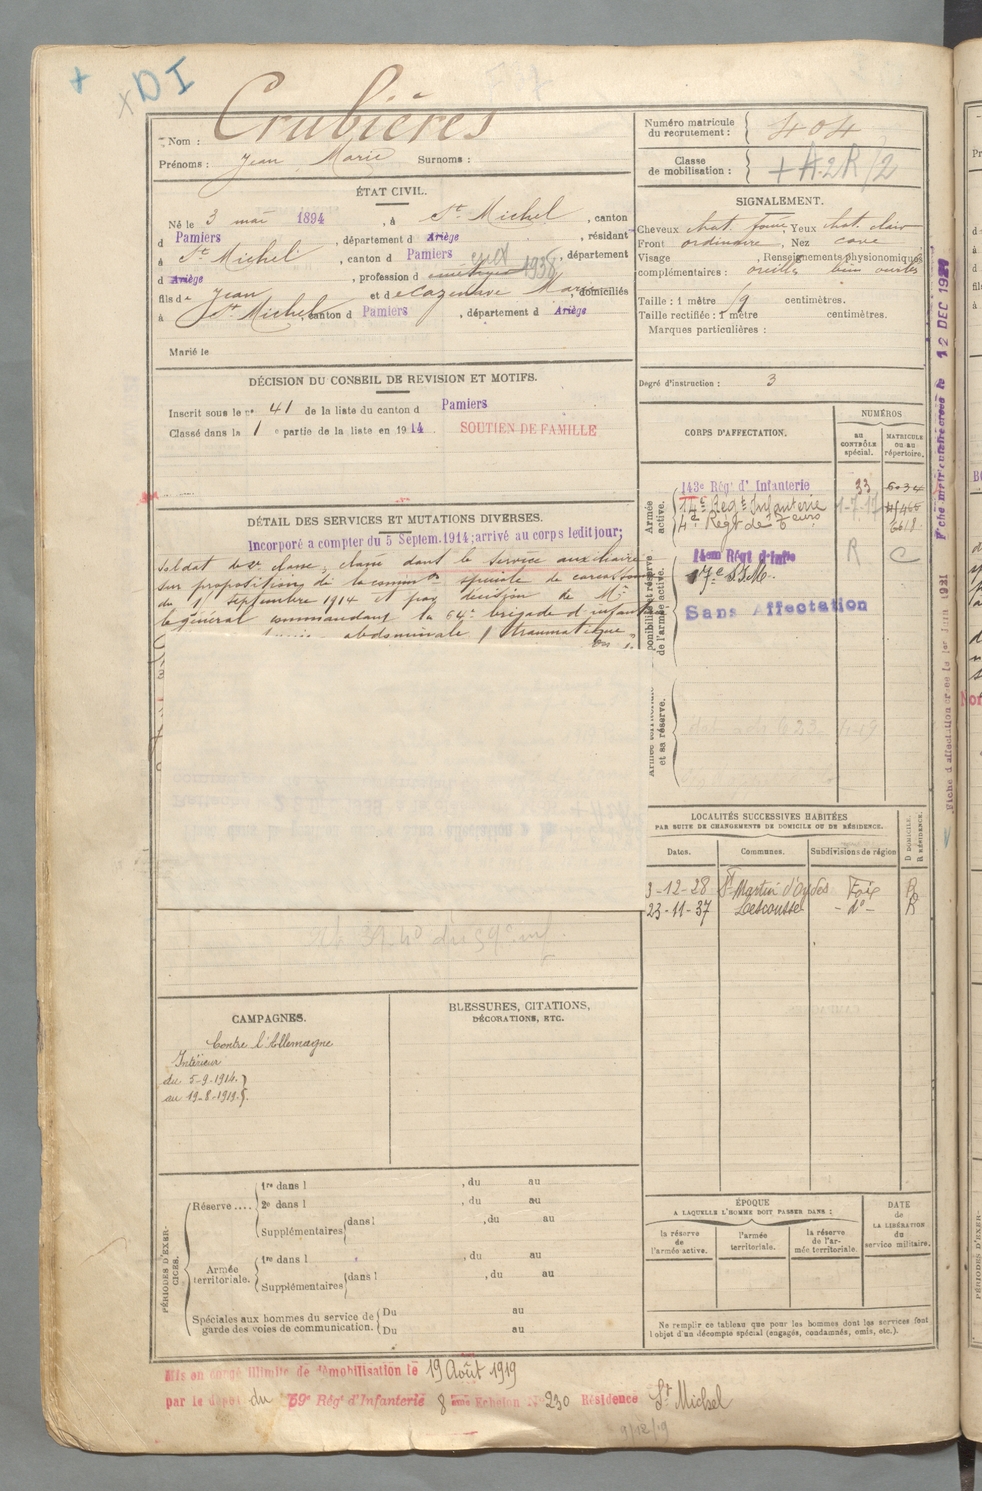 + x D I
Nom : Crubières
Prénoms : Jean Marie Surnoms :
Numéro matricule
du recrutement : 404
Classe
de mobilisation : + A.2R/2
ÉTAT CIVIL.
Né le 3 mai 1894, à St Michel, canton
d Pamiers, département d Ariège, résidant
à St Michel, canton d Pamiers, département
d Ariège, profession d
1938
fils de Jean et de Cazenave Marie, domiciliés
à St Michel canton d Pamiers, département d Ariège
Marié le
SIGNALEMENT.
Cheveux chat. foncé, Yeux chat. clair
Front ordinaire, Nez cave
Visage , Renseignements physionomiques
complémentaires : oreilles bien ourlées
Taille : 1 mètre 9 centimètres.
Taille rectifiée : 1 mètre centimètres.
Marques particulières :
Degré d'instruction : 3
DÉCISION DU CONSEIL DE REVISION ET MOTIFS.
Inscrit sous le n° 41 de la liste du canton d Pamiers
Classé dans la 1 e partie de la liste en 1914 SOUTIEN DE FAMILLE
DÉTAIL DES SERVICES ET MUTATIONS DIVERSES.
Incorporé à compter du 5 Septem. 1914; arrivé au corps ledit jour;
soldat de 2e classe, classé dans le service auxiliaire
sur proposition de la common spéciale de Carcassonne
du 11 septembre 1914 et par décision de Mr
le général commandant la 64e brigade d'infanterie
abdominale traumatique
CORPS D'AFFECTATION.
NUMÉROS
AU
CONTRÔLE
spécial.
MATRICULE
OU AU
répertoire.
Armée
active.
143e Régt d'Infanterie 23 6034
14e Régt Infanterie 1-7-17
4e Régt de 6618
Disponibilité et réserve
de l'armée active.
14em Régt d'Infie R C
17e S.I.M.
Sans Affectation
Armée territoriale
et sa réserve.
LOCALITÉS SUCCESSIVES HABITÉES
PAR SUITE DE CHANGEMENTS DE DOMICILE OU DE RÉSIDENCE.
Dates. Communes. Subdivisions de région
D DOMICILE.
R RÉSIDENCE.
3-12-28 St Martin d'Oydes Foix R
23-11-37 Lescousse - do - R
CAMPAGNES.
Contre l'Allemagne
Intérieur
du 5-9-1914.
au 19-8-1919.
BLESSURES, CITATIONS,
DÉCORATIONS, ETC.
PÉRIODES D'EXER-
CICES.
Réserve....
1re dans l , du au
2e dans l , du au
Supplémentaires dans l , du au
Armée
territoriale.
1re dans l , du au
Supplémentaires dans l , du au
Spéciales aux hommes du service de
garde des voies de communication.
Du au
Du au
ÉPOQUE
A LAQUELLE L'HOMME DOIT PASSER DANS :
la réserve
de
l'armée active.
l'armée
territoriale.
la réserve
de l'ar-
mée territoriale.
DATE
de
LA LIBÉRATION
du
service militaire.
Ne remplir ce tableau que pour les hommes dont les services font
l'objet d'un décompte spécial (engagés, condamnés, omis, etc.).
Mis en congé illimité de démobilisation le 19 Août 1919
par le dépôt du 59e Régt d'Infanterie 8 ème Echelon N° 230 Résidence St Michel
9/12/19
12 DEC 1921
Fiche d'affectation créée le 1er Juin 1921